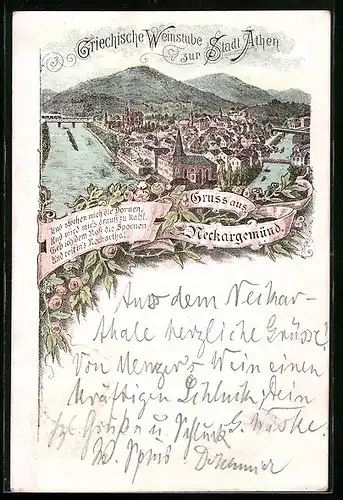 Griechische Weinstube
zur Stadt Athen
Gruss aus
Neckargemünd
Und stechen mich die Dornen,
Und wird mir's drauß zu kahl,
Geb ich dem Roß die Spornen
Und reit in's Neckarthal.
Aus dem Neckar-
thale herzliche Grüsse!
Von Menzer's Wein einen
kräftigen Schluck Dein
G. Gruß u. Schluck G.
W.